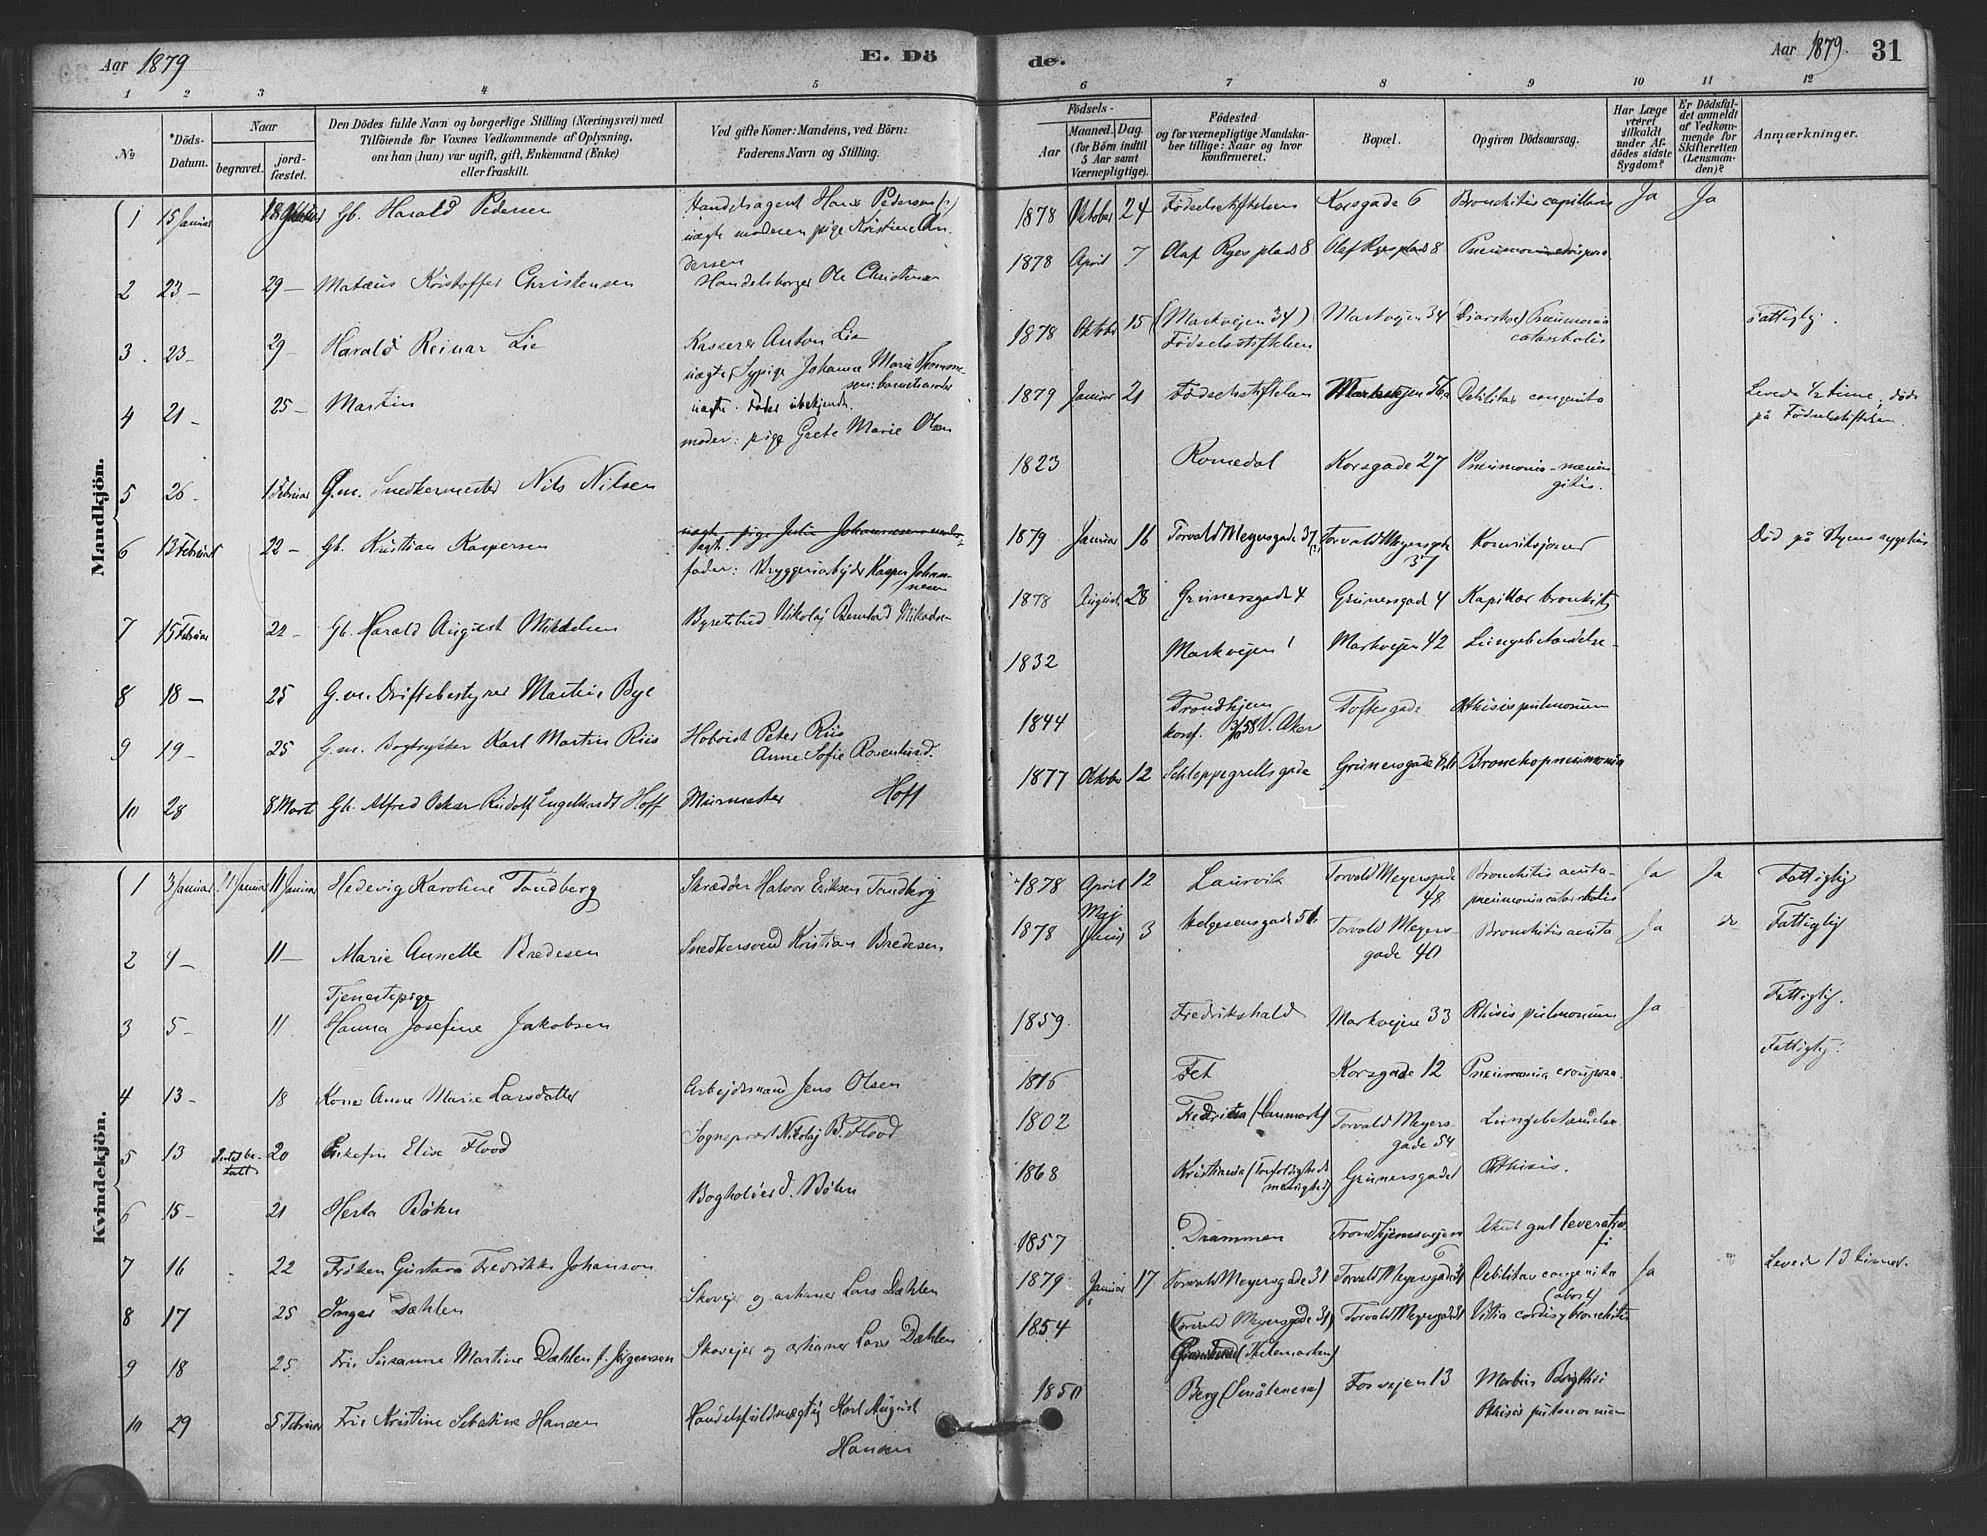 Aar 1879
E. Dö
de.
Aar 1879.
31
1 2 3 4 5 6 7 8 9 10 11 12
No
Döds-
Datum.
Naar
begravet.
jord-
fæstet.
Den Dödes fulde Navn og borgerlige Stilling (Næringsvei) med
Tilföiende for Voxnes Vedkommende af Oplysning,
om han (hun) var ugift, gift, Enkemand (Enke)
eller fraskilt.
Ved gifte Koner: Mandens, ved Börn:
Faderens Navn og Stilling.
Födsels-
Aar
Maaned. Dag.
(for Börn indtil
5 Aar samt
Værnepligtige).
Födested
og for værnepligtige Mandska-
ber tillige: Naar og hvor
konfirmeret.
Bopæl.
Opgiven Dödsaarsag.
Har Læge
været
tilkaldt
under Af-
dödes sidste
Sygdom?
Er Dödsfal-
det anmeldt
af Vedkom-
mende for
Skifteretten
(Lensman-
den)?
Anmærkninger.
Mandkjön.
1 15 Januar 18 Gb. Harald Pedersen
Handelsagent Hans Pedersen
uægte moderen pige Kristine An-
dersen
1878 Oktober 24 Födselsstiftelsen Korsgade 6 Bronchitis capillaris Ja Ja
2 23 – 29 – Matæus Kristoffer Christensen Handelsborger Ole Christensen
1878 April 7 Olaf Ryes plads 8 Olaf Ryes plads 8 Pneumonia crouposa
3 23 – 29 – Harald Reinar Lie Kasserer Anton Lie
uægte, Sypige Johanne Marie
1878 Oktober 15 (Markvejen 34) Markvejen 34 Pneumonia
Födselsstiftelsen catarrhalis
Fattiglig.
4 21 – 25 – Martin
uægte. Fader ubekjendt.
moder: pige Grete Marie Olsen
1879 Januar 21 Födselsstiftelsen Markvejen 56a Debilitas congenita
Levede 1/2 time, död
på Födselsstiftelsen.
5 26 – 1 Februar G.m. Snedkermester Nils Nilsen
1823 Romedal Korsgade 27 Pneumonia – menin-
gitis.
6 13 Februar 22 – Gb. Kristian Kaspersen
uægt. pige Julie Johannesen
ægte.
fader: Bryggeriarbejder Kasper Johan-
nesen
1879 Januar 16 Torvald Meyersgade 37 Torvald Meyersgade
37
Konvulsjoner
Död på sygehus
7 15 Februar 22 – Gb. Harald August Mikkelsen Byretsbud Nikolaj Bernhard Mikkelsen
1878 August 28 Grünersgade 4 Grünersgade 4 Kapillær bronkit
8 18 – 25 G.m. Driftsbestyrer Martin Bye
1832 Markvejen Markvejen 42 Lungebetændelse –
9 19 – 25 G.m. Bogtrykker Karl Martin Riis
Peter Riis
Anne Sofie Rosenlund.
1844 Trondhjem
konf. 58 V. Aker
Toftesgade Phthisis pulmonum
10 28 8 Marts Gb. Alfred Oskar Rudolf Engelhardt Hoff Murmester Hoff
1877 Oktober 12 Schleppegrellsgade Grünersgade Bronchopneumonia
Kvindekjön.
1 3 Januar 11 Januar 11 Januar Hedevig Karoline Tandberg Skrædder Halvor Eriksen Tandberg
1878 April 12 Laurvik Torvald Meyersgade
48
Bronchitis acuta –
pneumonia catarrhalis
Ja Ja Fattiglig
2 4 – 11 – Marie Annette Bredesen Snedkersvend Kristian Bredesen.
1878 Maj
(Juni) 3 Helgesensgade 56 Torvald Meyers-
gade 40
Bronchitis acuta Ja do Fattiglig
3 5 – 11 Tjenestepige
Hanna Josefine Jakobsen
1859. Fredrikshald Markvejen 33 Phthisis pulmonum Ja Fattiglig.
4 13 – 18 Kone Anne Marie Larsdatter Arbejdsmand Jens Olsen
1816 Fet Korsgade 12 Pneumonia crouposa. Fattiglig.
5 13 20 Enkefru Elise Flood Sogneprest Nikolaj B. Flood
1802 Fredericia (Danmark) Torvald Meyers-
gade 54
Lungebetændelse
6 15 – 21 Herta Böhn Bogholder D. Böhn
1868 Kristiania (Trefoldigheds
menighed)
Grünersgade Phthisis.
7 16 22 Fröken Gustava Fredrikke Johanson
1857 Drammen Trondhjemsvejen
6
Akut gul leveratro-
fi
8 17 25 Inger Dæhlen Skovejer og Lars Dæhlen
1879 Januar 17 Torvald Meyersgade 31 Torvald Meyersgade 31 Debilitas congenita
(abort)
Ja Levede 13 timer.
9 18 25 Fru Susanne Martine Dæhlen f. Jörgensen Skovejer og Lars Dæhlen
1854 (Torvald Meyersgade 31) Torvald Meyersgade 31 Vitia cordis, bronchitis
(Thelemarken)
10 29 5 Februar Fru Kristine Sebatine Hansen Handelsfuldmægtig Karl August
Hansen
1850 Berg (Smålenene) Fosvejen 13 Morbus Brightii
Phthisis pulmonum